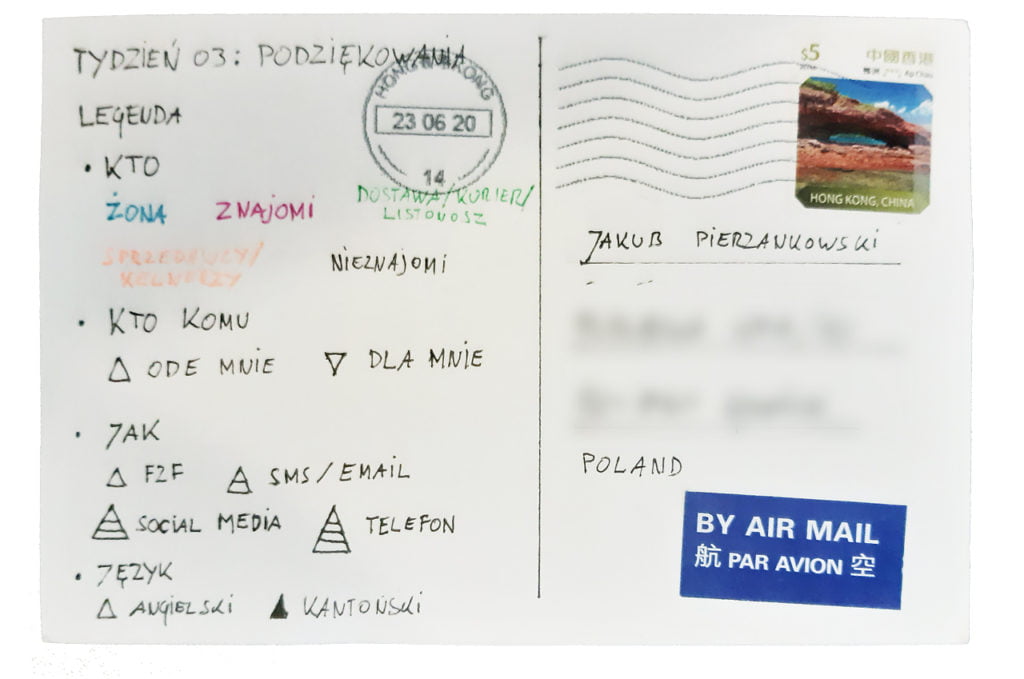 TYDZIEŃ 03: PODZIĘKOWANIA
LEGENDA
• KTO
ŻONA ZNAJOMI DOSTAWA/KURIER/
LISTONOSZ
SPRZEDAWCY/
KELNERZY
NIEZNAJOMI
• KTO KOMU
△ ODE MNIE ▽ DLA MNIE
• JAK
△ F2F △ SMS/EMAIL
△ SOCIAL MEDIA △ TELEFON
• JĘZYK
△ ANGIELSKI ▲ KANTOŃSKI
HONG KONG
23 06 20
14
$5 中國香港
HONG KONG, CHINA
JAKUB PIERZANKOWSKI
POLAND
BY AIR MAIL
航 PAR AVION 空